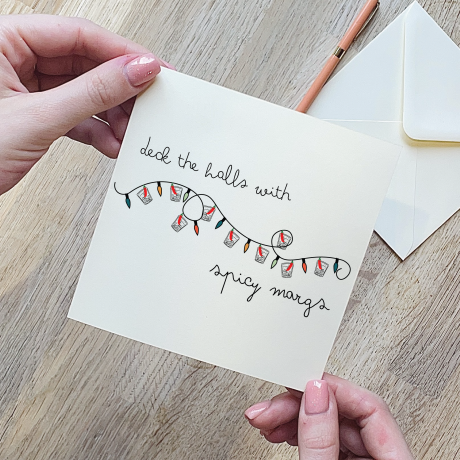 deck the halls with
spicy margs